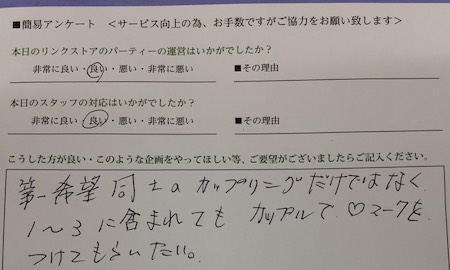 ■簡易アンケート　＜サービス向上の為、お手数ですがご協力をお願い致します＞
本日のリンクストアのパーティーの運営はいかがでしたか？
非常に良い・良い・悪い・非常に悪い　■その理由
本日のスタッフの対応はいかがでしたか？
非常に良い・良い・悪い・非常に悪い　■その理由
こうした方が良い・このような企画をやってほしい等、ご要望がございましたらご記入ください。
第一希望同士のカップリングだけではなく
1～3に含まれてもカップルで♡マークを
つけてもらいたい。